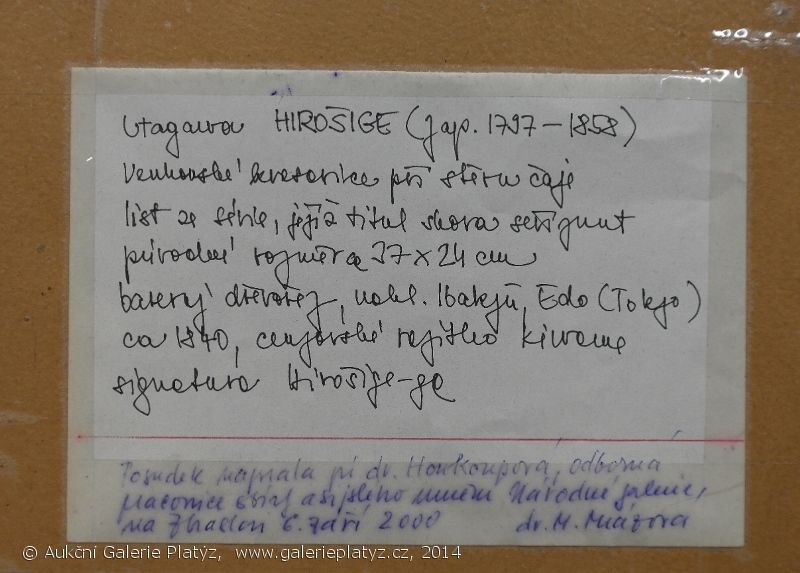 Utagawa HIROŠIGE (Jap. 1797 – 1858)
Venkovské krasavice při sběru čaje
list ze série, jejíž titul shora seříznut
původně rozměra 37 x 24 cm
barevný dřevořez, nakl. Ibakjú, Edo (Tokjo)
ca 1840, cenzorské razítko kiwame
signatura Hirošige-ga
Posudek napsala pí dr. Honkoupová, odborná
pracovnice sbírky asijského umění Národní galerie,
na Zbraslavi 6. září 2000 dr. M.
© Aukční Galerie Platýz, www.galerieplatyz.cz, 2014